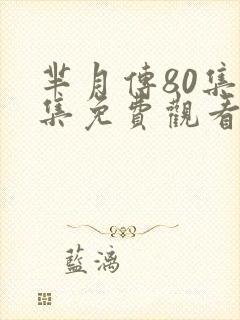 芈月傳80集
集免費觀看
藍漓